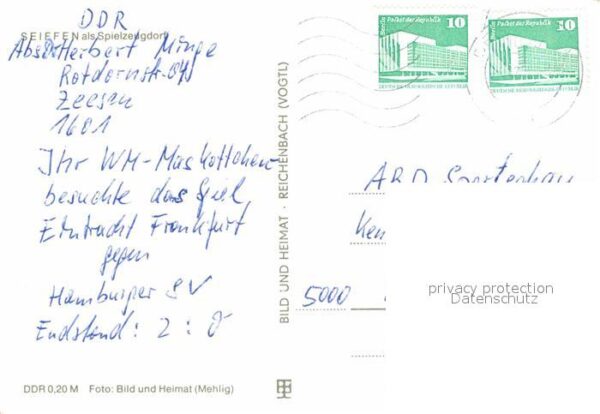 DDR
SEIFFEN als Spielzeugdorf
Abs. Herbert Minge
Rotdornstr.
Zeesen
1601
Ihr WM-Maskottchen
besuchte das Spiel
Eintracht Frankfurt
gegen
Hamburger SV
Endstand: 2:0
DDR 0,20 M Foto: Bild und Heimat (Mehlig)
BILD UND HEIMAT · REICHENBACH (VOGTL)
Berlin Palast der Republik 10
DEUTSCHE DEMOKRATISCHE REPUBLIK
Berlin Palast der Republik 10
DEUTSCHE DEMOKRATISCHE REPUBLIK
ARD
Ken
5000
privacy protection
Datenschutz